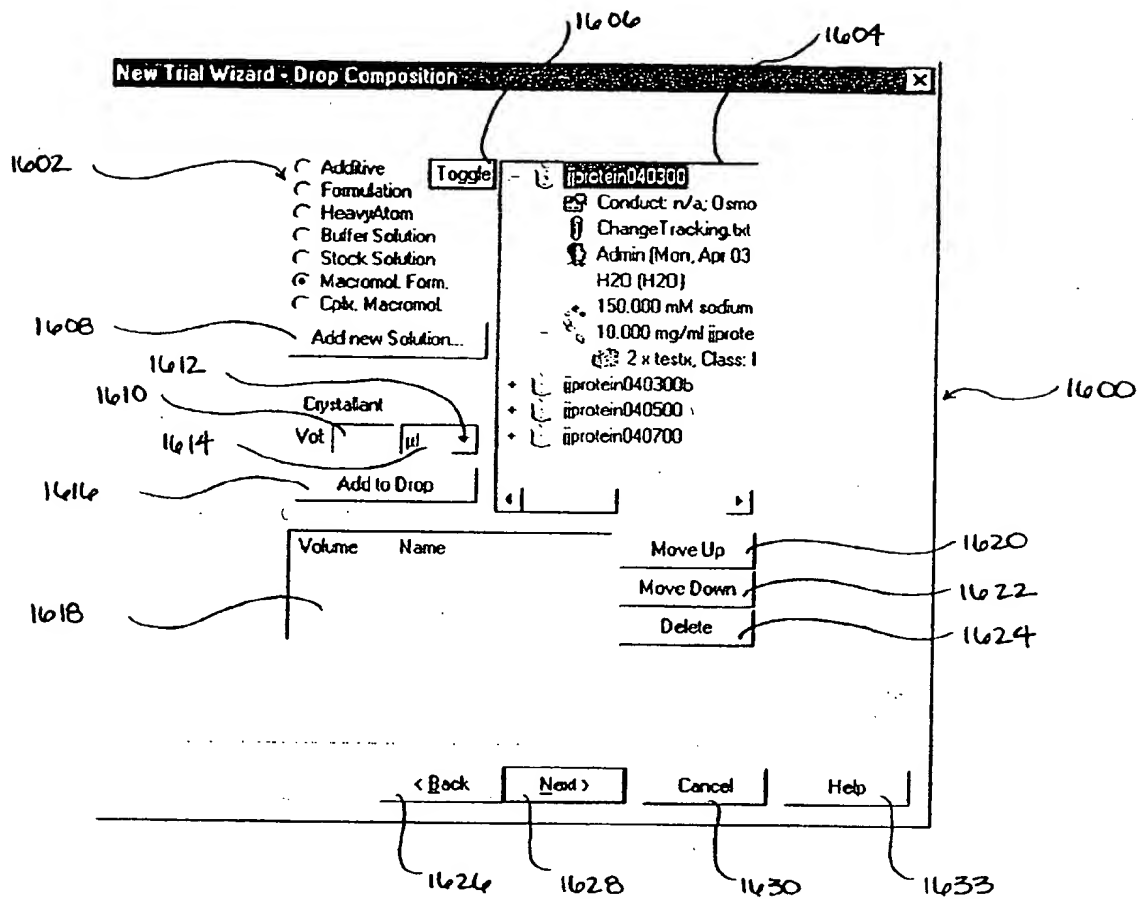 1606
1604
New Trial Wizard - Drop Composition
1602
Additive
Formulation
HeavyAtom
Buffer Solution
Stock Solution
Macromol. Form.
Cplx. Macromol.
Toggle
jjprotein040300
Conduct: n/a; Osmo
ChangeTracking.txt
Admin (Mon, Apr 03
H2O (H2O)
150.000 mM sodium
10.000 mg/ml jjprote
2 x testx, Class: I
jjprotein040300b
jjprotein040500
jjprotein040700
1608
Add new Solution...
1612
1610
Crystallant
1600
Vol:
µl
1614
1616
Add to Drop
Volume Name
Move Up
1620
Move Down
1622
1618
Delete
1624
< Back
Next >
Cancel
Help
1626
1628
1630
1633